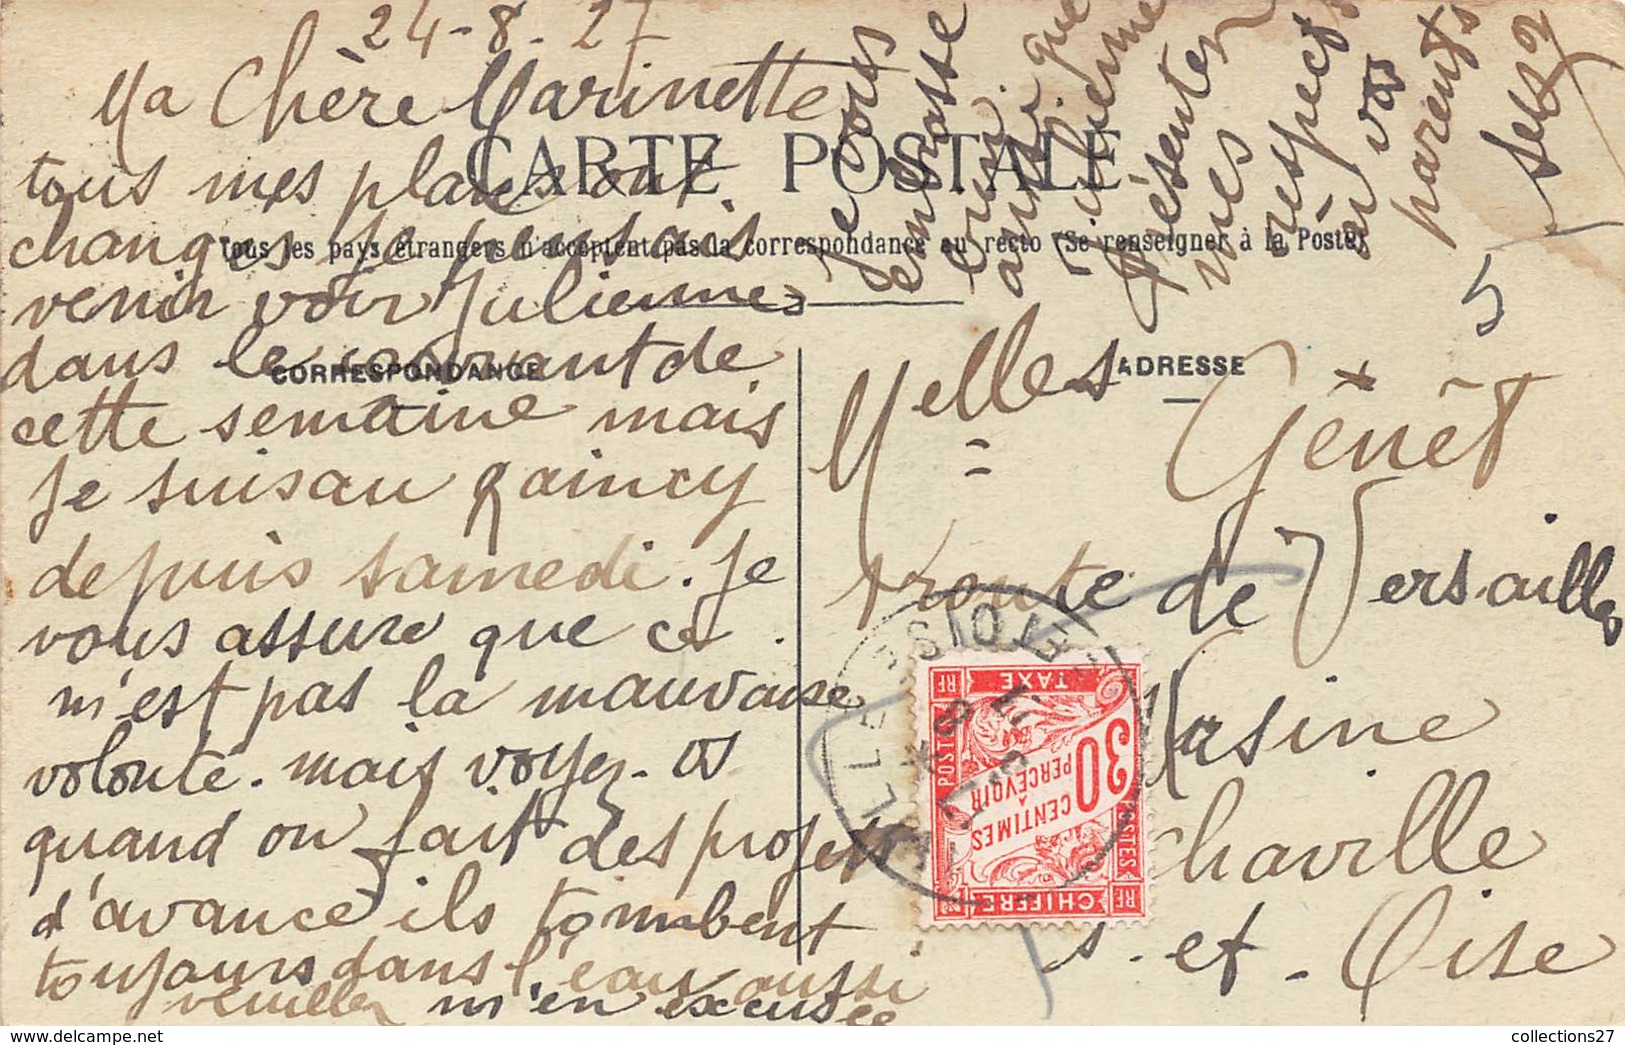 24-8-27
Ma Chère Marinette
CARTE POSTALE
tous mes plans ont
Tous les pays étrangers n'acceptent pas la correspondance au recto (Se renseigner à la Poste)
changés je pensais
venir voir Julienne
dans le courant de
CORRESPONDANCE
cette semaine mais
je suis au Raincy
depuis samedi. Je
vous assure que ce
n'est pas la mauvaise
volonté. mais voyez-vs
quand on fait des projets
d'avance ils tombent
toujours dans l'eau aussi
veuillez m'en excuser
Je vous
embrasse
ainsi que
Julienne
présenter
mes
respects
à vos
parents
5
ADRESSE
Melles Génêt
route de Versailles
Ursine
chaville
S. et. Oise
TAXE
RF
POSTES
30
CENTIMES
À
PERCEVOIR
POSTES
CHIFFRE
RF
collections27